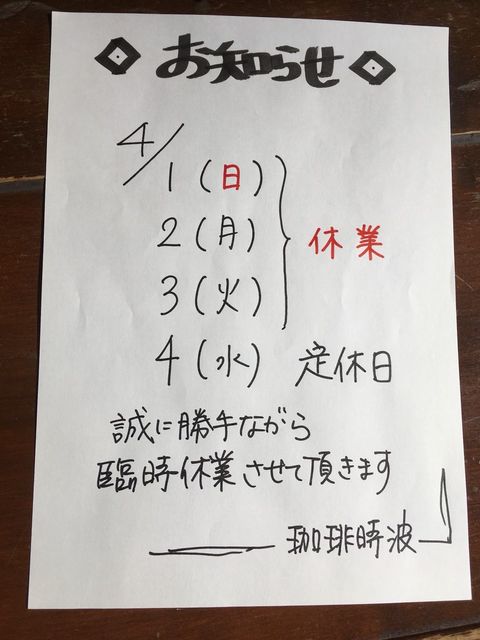 お知らせ
4/1(日)
2(月)
3(火)
休業
4(水) 定休日
誠に勝手ながら
臨時休業させて頂きます
珈琲時波